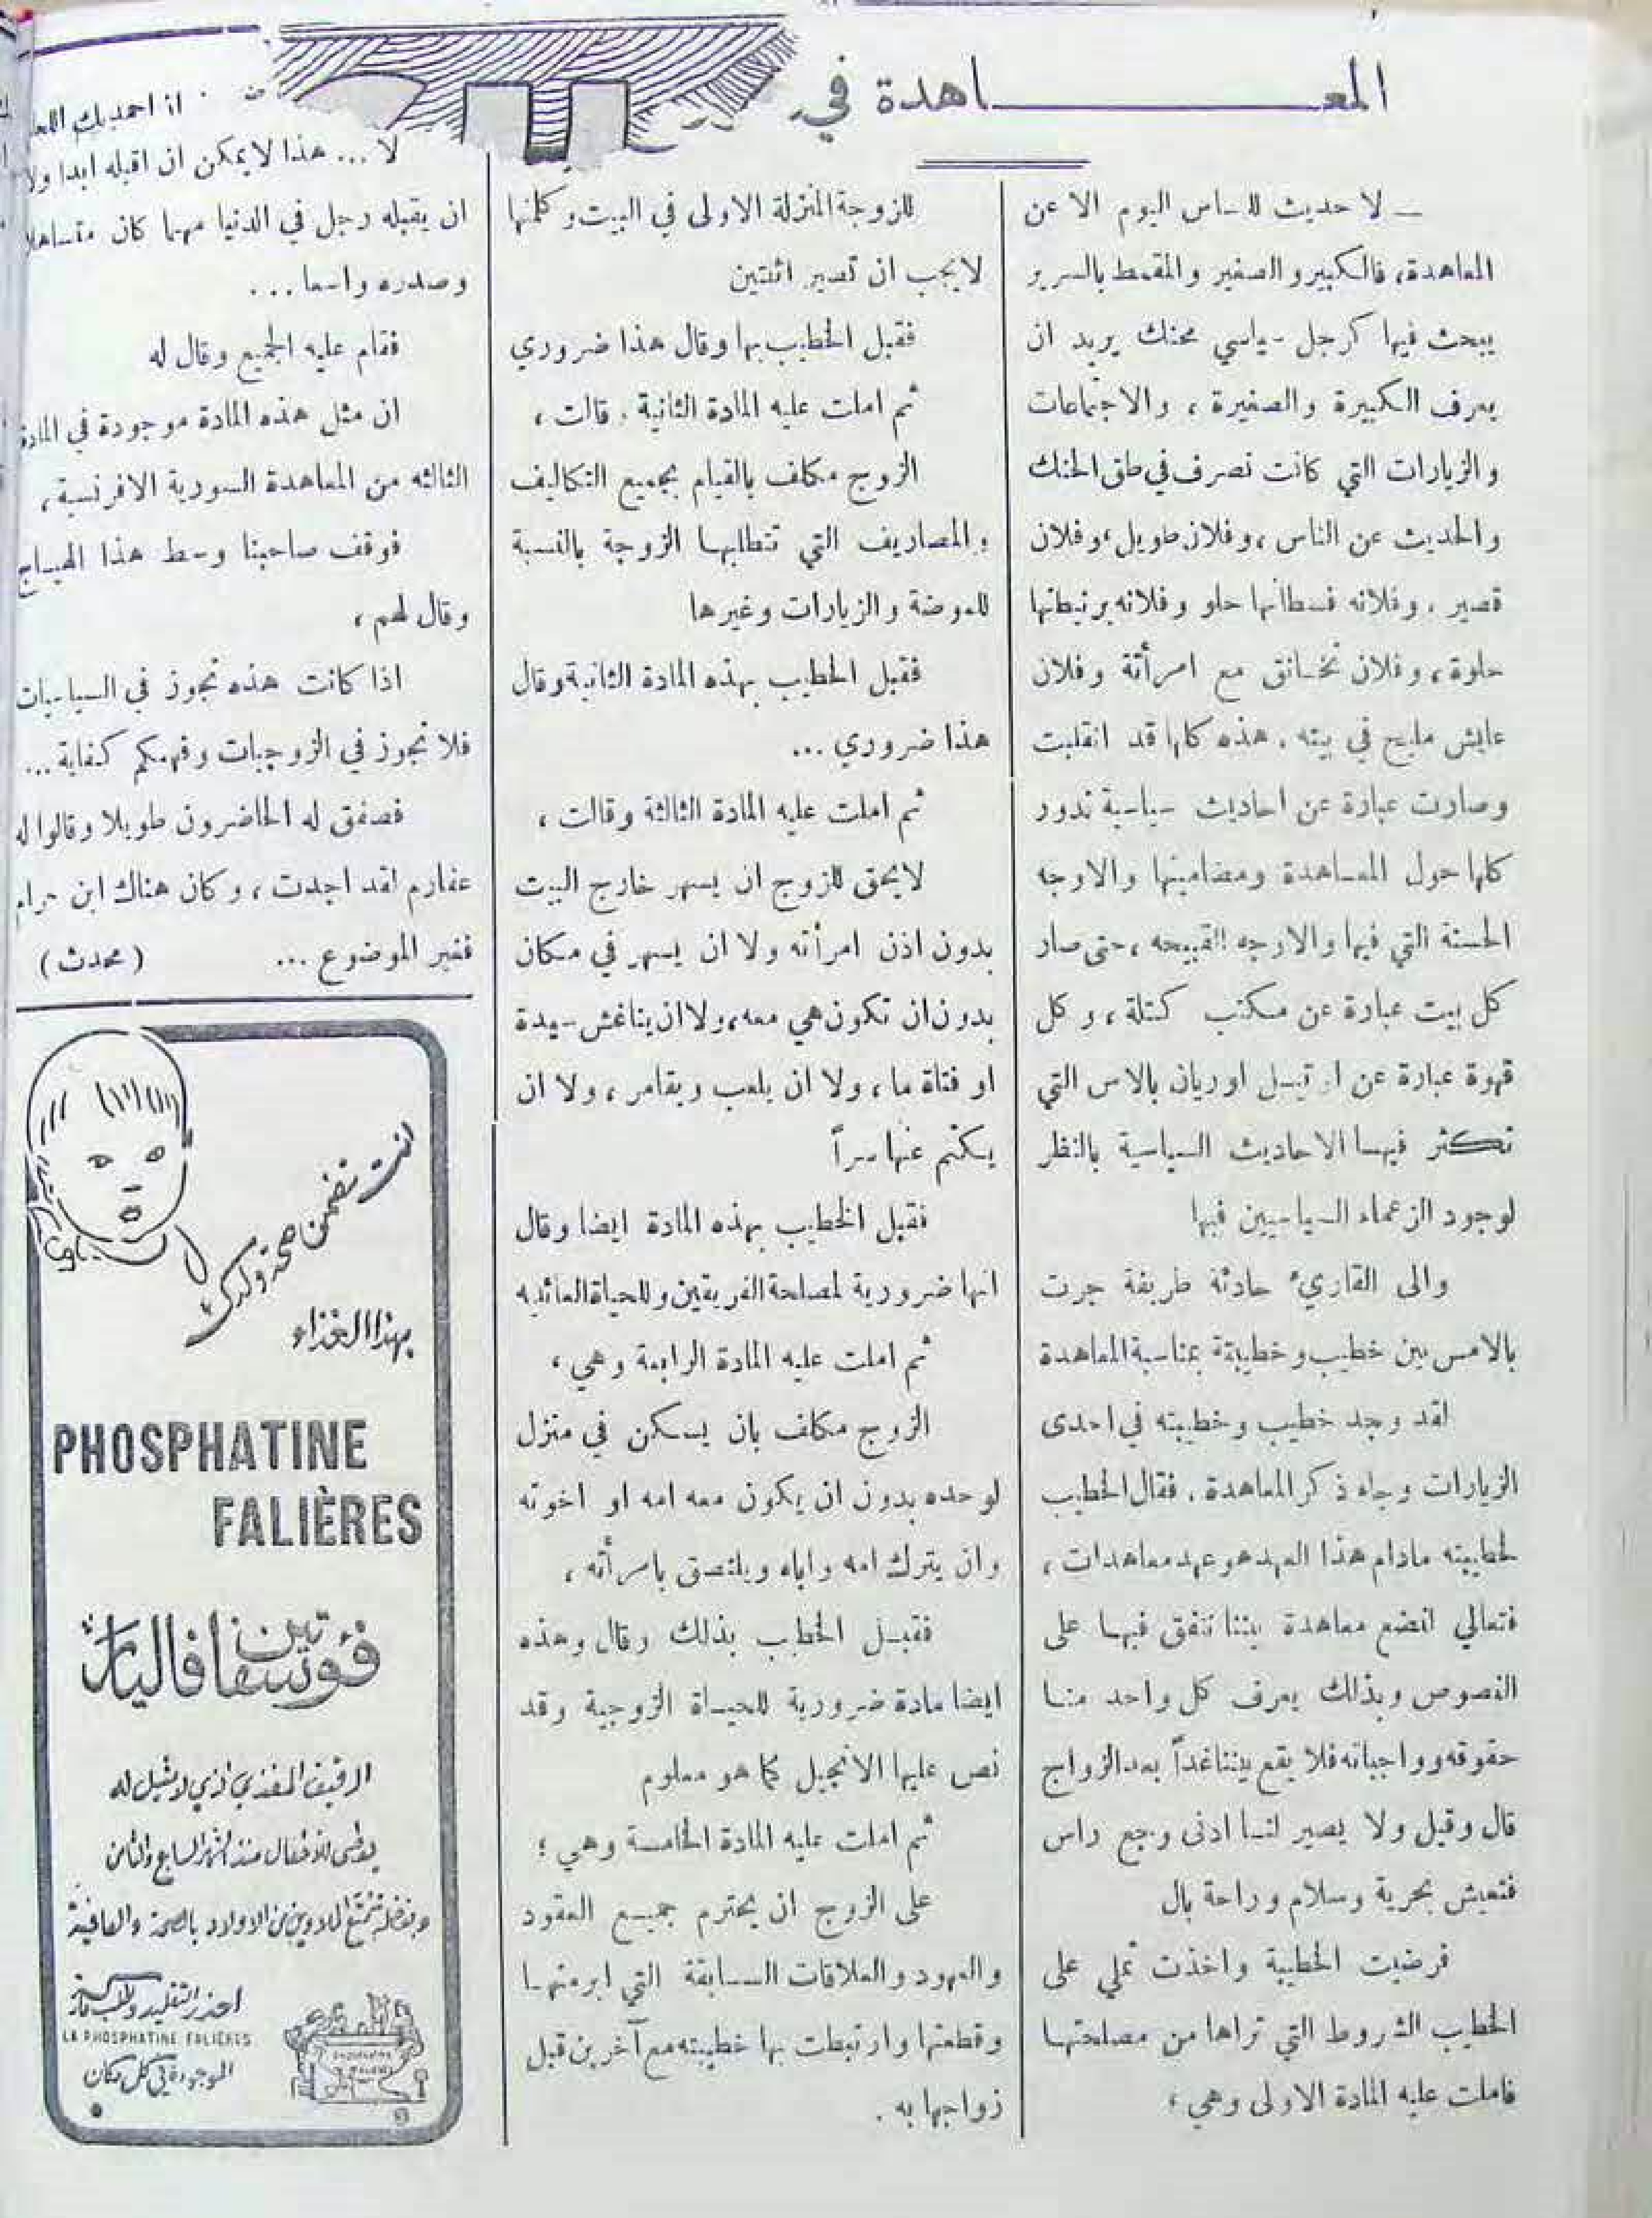 المعـــــاهدة في
ـ لا حديث للناس اليوم الا عن
المعاهدة، فالكبير والصغير والمقمط بالسرير
يبحث فيها كرجل سياسي محنك يريد ان
يعرف الكبيرة والصغيرة ، والاجتماعات
والزيارات التي كانت تصرف في طق الحنك
والحديث عن الناس ، وفلان طويل ، وفلان
قصير . وفلانه فسطانها حلو وفلانه برنيطتها
حلوة ، وفلان تخانق مع امرأتة وفلان
عايش مليح في بيته . هذه كلها قد انقلبت
وصارت عبارة عن احاديث سياسية تدور
كلها حول المعاهدة ومضامينها والاوجه
الحسنة التي فيها والاوجه القبيحه ، حتى صار
كل بيت عبارة عن مكتب كتلة ، وكل
قهوة عبارة عن اوتيل اوريان بالاس التي
تكثر فيها الاحاديث السياسية بالنظر
لوجود الزعماء السياسيين فيها
والى القاريء حادثة طريفة جرت
بالامس بين خطيب وخطيبتة بمناسبة المعاهدة
لقد وجد خطيب وخطيبته في احدى
الزيارات وجاء ذكر المعاهدة . فقال الخطيب
لخطيبته مادام هذا العهد هو عهد معاهدات ،
فتعالي لنضع معاهدة بيننا نتفق فيها على
النصوص وبذلك يعرف كل واحد منا
حقوقه وواجباته فلا يقع بيننا غداً بعد الزواج
قال وقيل ولا يصير لنا ادنى وجع راس
فنعيش بحرية وسلام وراحة بال
فرضيت الخطيبة واخذت تملي على
الخطيب الشروط التي تراها من مصلحتها
فاملت عليه المادة الاولى وهي ،
للزوجة المنزلة الاولى في البيت وكلمتها
لايجب ان تصير اثنتين
فقبل الخطيب بها وقال هذا ضروري
ثم املت عليه المادة الثانية . قالت ،
الزوج مكلف بالقيام بجميع التكاليف
والمصاريف التي تتطلبها الزوجة بالنسبة
للموضة والزيارات وغيرها
فقبل الخطيب بهذه المادة الثانية وقال
هذا ضروري ...
ثم املت عليه المادة الثالثة وقالت ،
لايحق للزوج ان يسهر خارج البيت
بدون اذن امرأته ولا ان يسهر في مكان
بدون ان تكون هي معه، ولا ان يناغش سيدة
او فتاة ما ، ولا ان يلعب ويقامر ، ولا ان
يكتم عنها سراً
فقبل الخطيب بهذه المادة ايضا وقال
انها ضرورية لمصلحة الفريقين وللحياة العائليه
ثم املت عليه المادة الرابعة وهي ،
الزوج مكلف بان يسكن في منزل
لوحده بدون ان يكون معه امه او اخوته
وان يترك امه واباه ويلتصق بامرأته ،
فقبل الخطيب بذلك وقال وهذه
ايضا مادة ضرورية للحياة الزوجية وقد
نص عليها الانجيل كما هو معلوم
ثم املت عليه المادة الخامسة وهي ؛
على الزوج ان يحترم جميع العقود
والعهود والعلاقات السابقة التي ابرمتها
وقطعتها وارتبطت بها خطيبته مع آخرين قبل
زواجها به .
لا ... هذا لايمكن ان اقبله ابدا ولا
ان يقبله رجل في الدنيا مهما كان متساهلا
وصدره واسعا ...
فقام عليه الجميع وقال له
ان مثل هذه المادة موجودة في المادة
الثالثه من المعاهدة السورية الافرنسية،
فوقف صاحبنا وسط هذا الهياج
وقال لهم ،
اذا كانت هذه تجوز في السياسيات
فلا تجوز في الزوجيات وفهمكم كفاية ...
فصفق له الحاضرون طويلا وقالوا له
عفارم لقد اجدت ، وكان هناك ابن حرام
فغير الموضوع ... (محدث)
انت تضمن صحة ولدك
بهذا الغذاء
PHOSPHATINE
FALIÈRES
فوسفاتين فاليار
الدقيق المغذي الذي لا مثيل له
يعطى للاطفال منذ الشهر السابع والثامن
وبفضله تتمتع الملايين من الاولاد بالصحة والعافية
احذر التقليد واطلب ماركة
LA PHOSPHATINE FALIÈRES
الموجودة في كل مكان